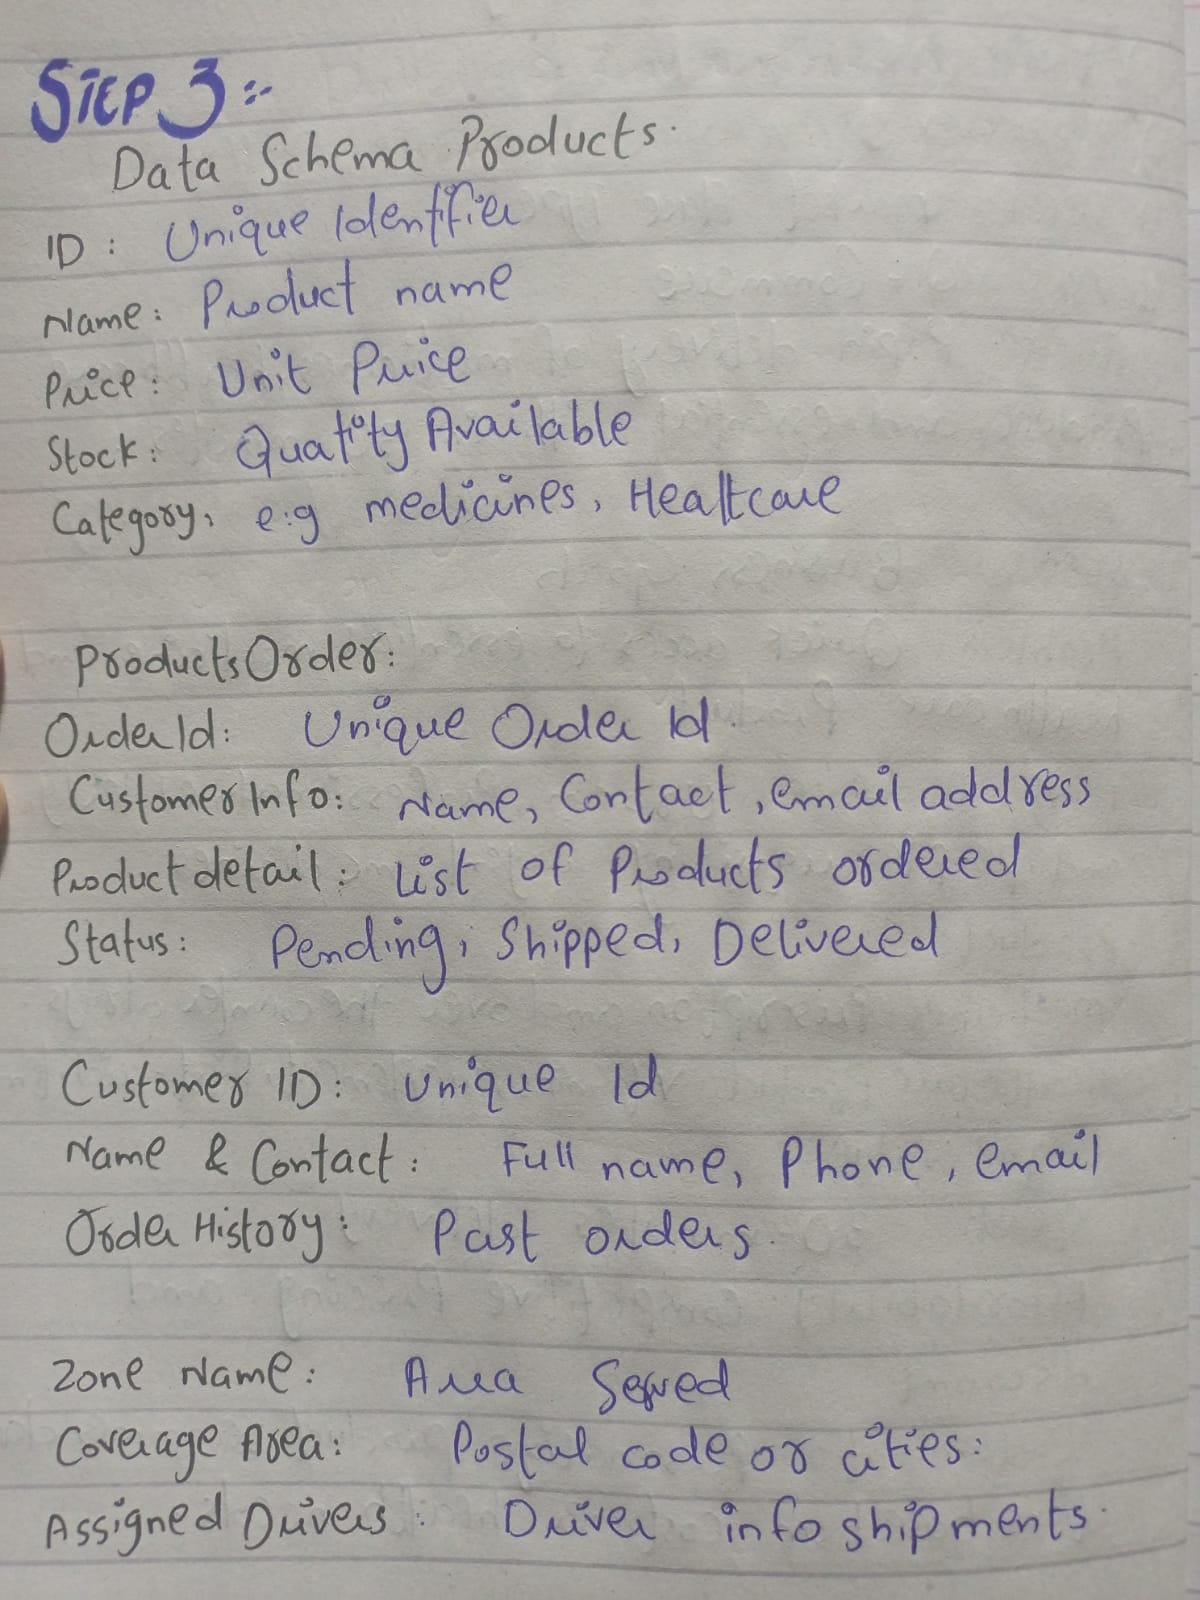 STEP 3:-
Data Schema Products.
ID: Unique Identifier
Name: Product name
Price: Unit Price
Stock: Quatity Available
Category, e.g medicines, Healtcare
ProductsOrder:
OrderId: Unique Order Id.
CustomerInfo: Name, Contact, email address
Product detail: List of Products ordered
Status: Pending, Shipped, Delivered
Customer ID: Unique Id
Name & Contact: Full name, Phone, email
Order History: Past orders.
Zone Name: Area Served
Coverage Area: Postal code or cities:
Assigned Drivers: Driver info shipments.